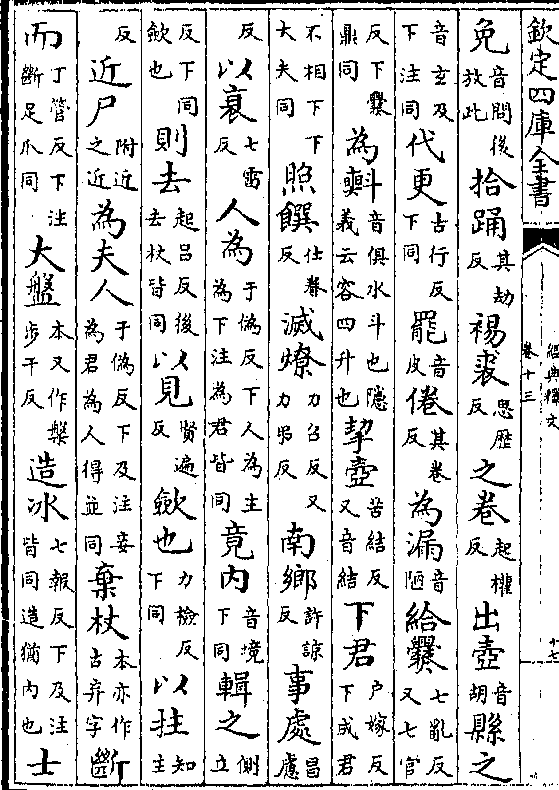 欽定四庫全書 經典釋文 卷十三 十七
免音問後放此拾踊其劫反裼裘思歷反之卷起權反出壺音胡縣之
音玄及下注同代更古行反下同罷音皮倦其卷反為漏音陋給爨七亂反又七官
反下爨鼎同為㪺音俱水斗也隱義云容四升也挈壺苦結反又音結下君戶嫁反下成君
不相下下大夫同照饌仕眷反滅燎力召反又力弔反南鄉許諒反事處昌慮
反以衰七雷反人為于偽反下人為主為下注為君皆同竟內音境下同輯之側立
反下同斂也則去起呂反後去杖皆同以見賢遍反斂也力檢反下同以拄知主
反近尸附近之近為夫人于偽反下及注妾為君為人得並同棄杖本亦作古弃字斷
而丁管反下注斷足爪同大盤本又作槃步干反造冰七報反下及注皆同造猶內也士